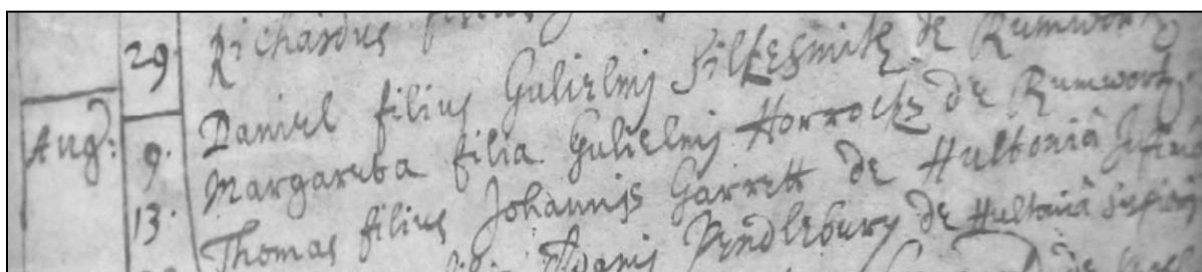 Richardus filius
29. Daniel filius Gulielmj Silkesmith de Rumworth
Aug: 9. Margareta filia Gulielmj Horrockz de Rumworth
13. Thomas filius Johannjs Garrett de Hultoniâ
Adamj Pendlebury de Hultoniâ
de